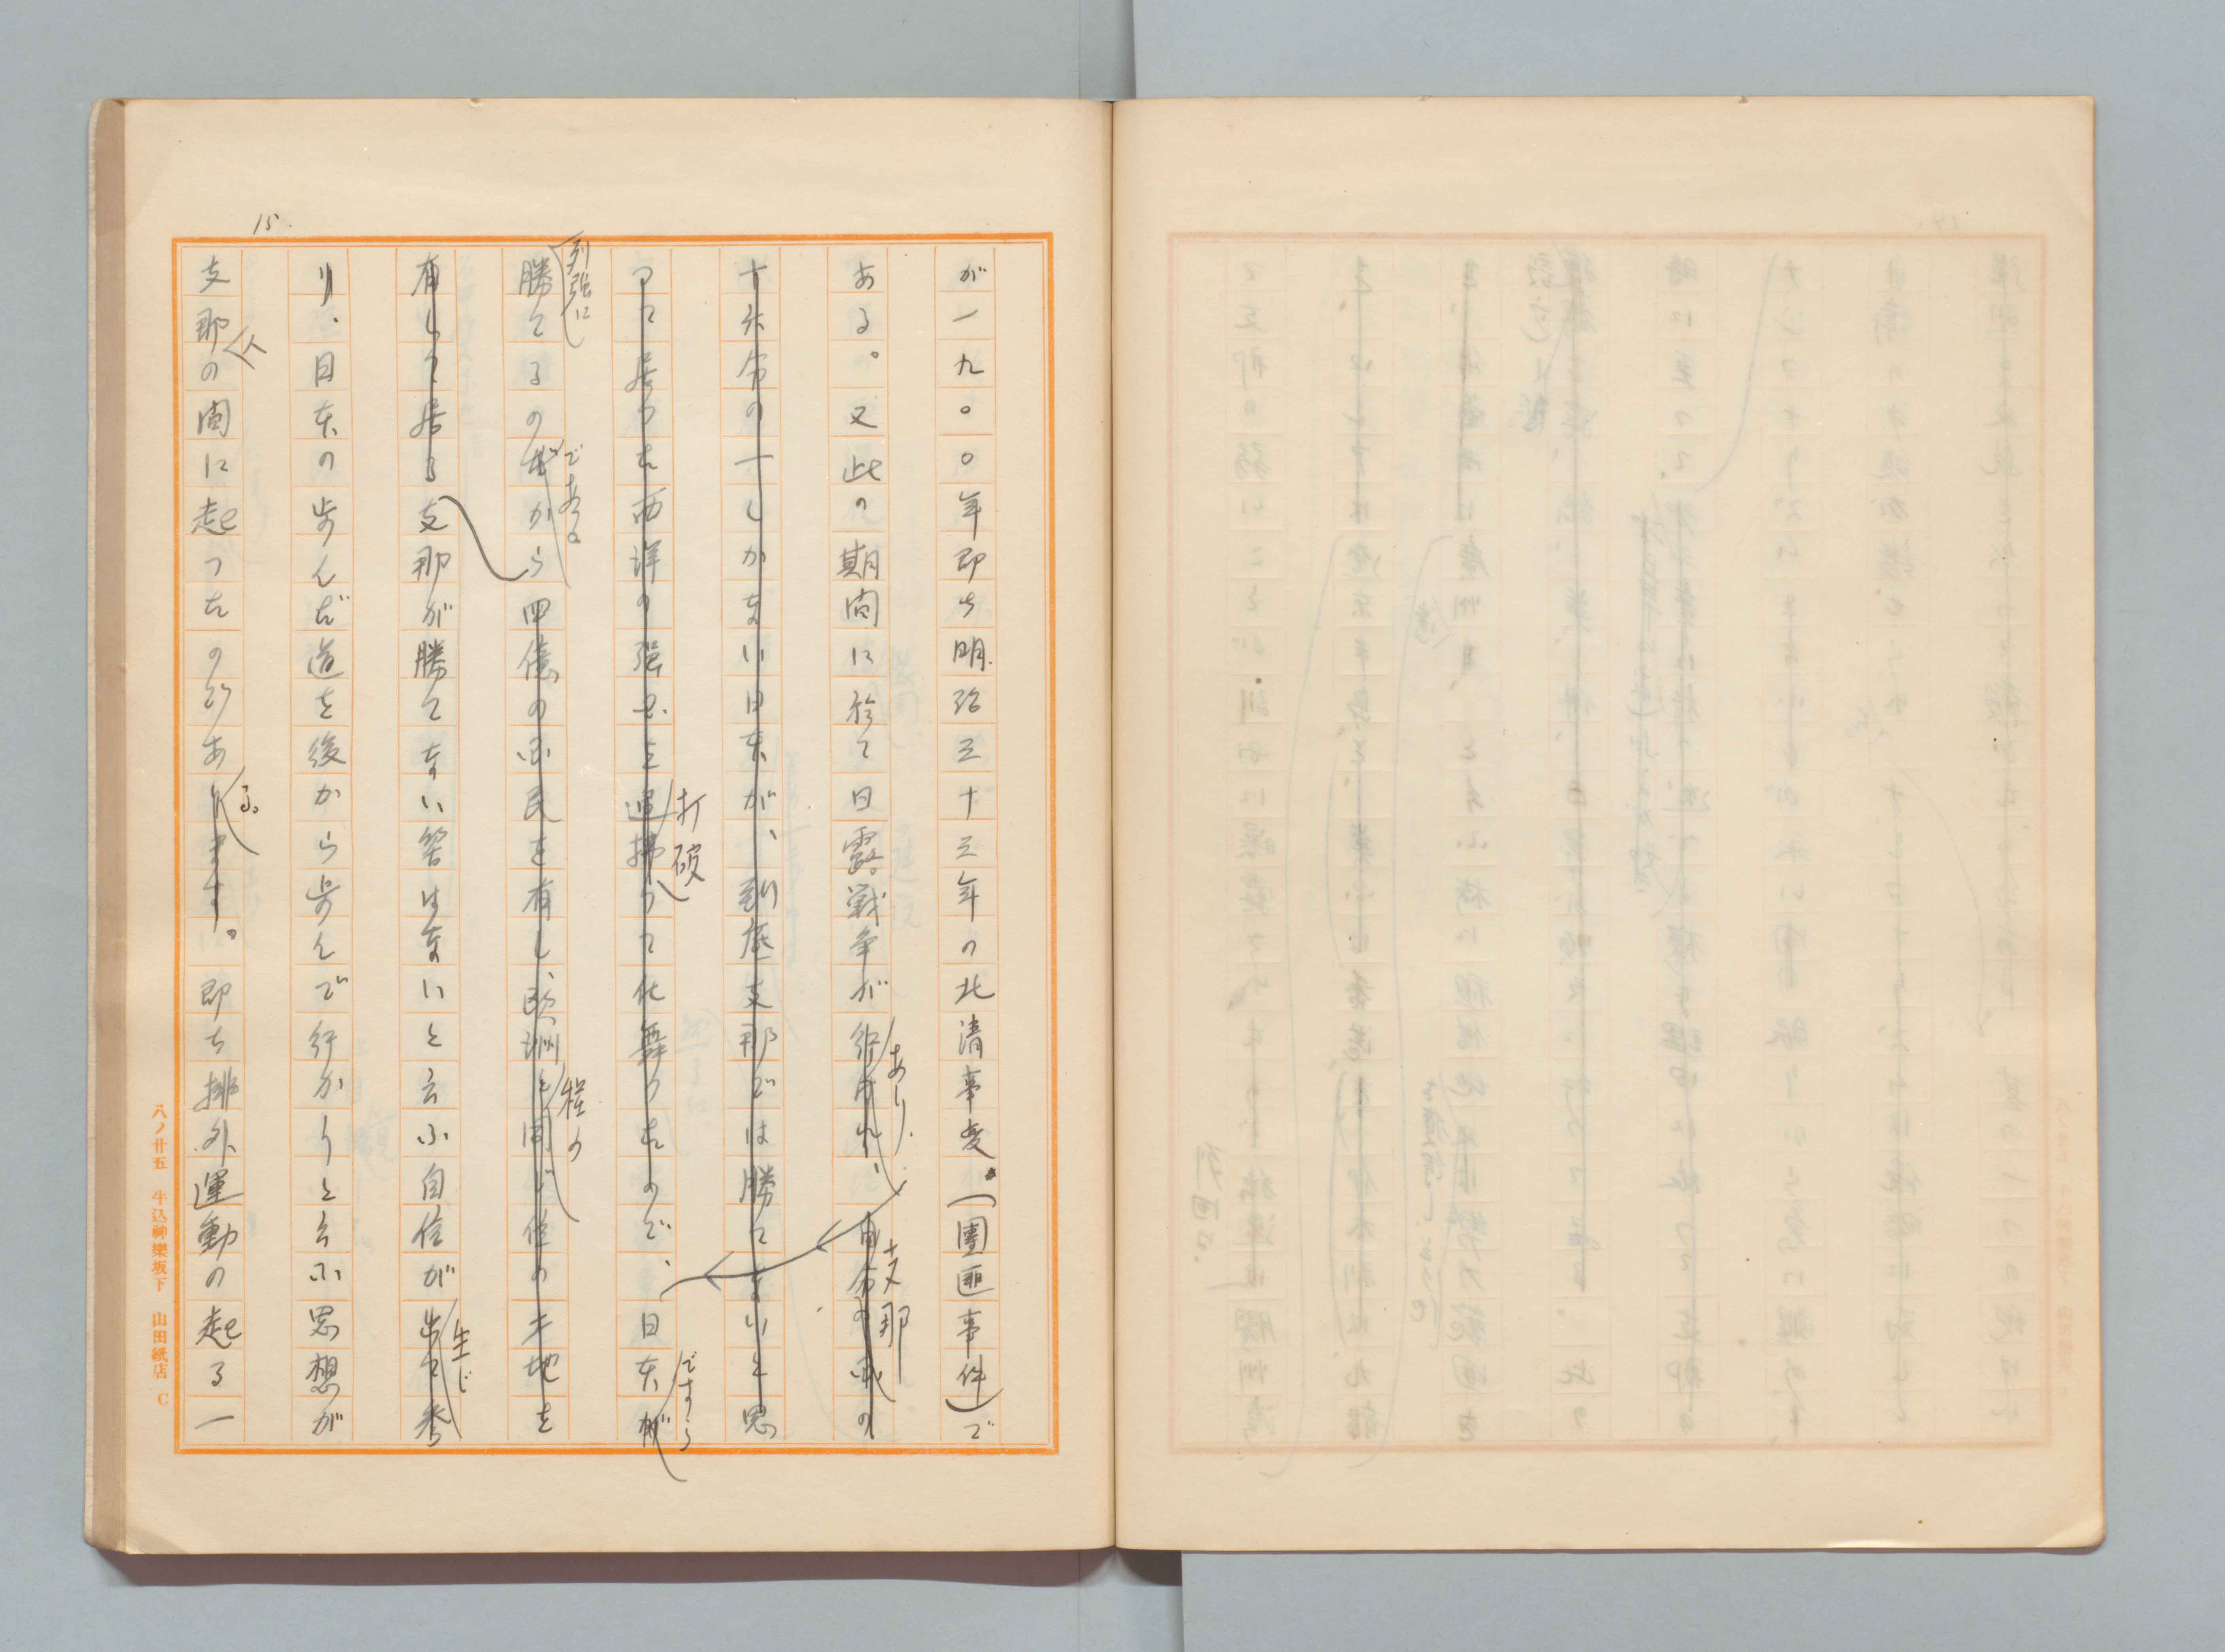 15.
が一九〇〇年即ち明治三十三年の北清事変。(團匪事件)で
ある。又此の期間に於て日露戦争が行はれ、自分の国の
あり、
支那
十六分の一しかない日本が、到底支那では勝てないと思
つて居つた西洋の強
を追拂つて仕舞つたので、日本が
打破
ですら
勝てるのだから四億の国民を有し、欧洲と同じ位の土地を
列強に
である
程の
有して居る支那が勝てない筈はないと云ふ自信が出て参
生じ
り、日本の歩んだ道を後から歩んで行かうと云ふ思想が
支那の間に起つたのであります。即ち排外運動の起る一
人
る。
八ノ廿五 牛込神樂坂下 山田紙店 C